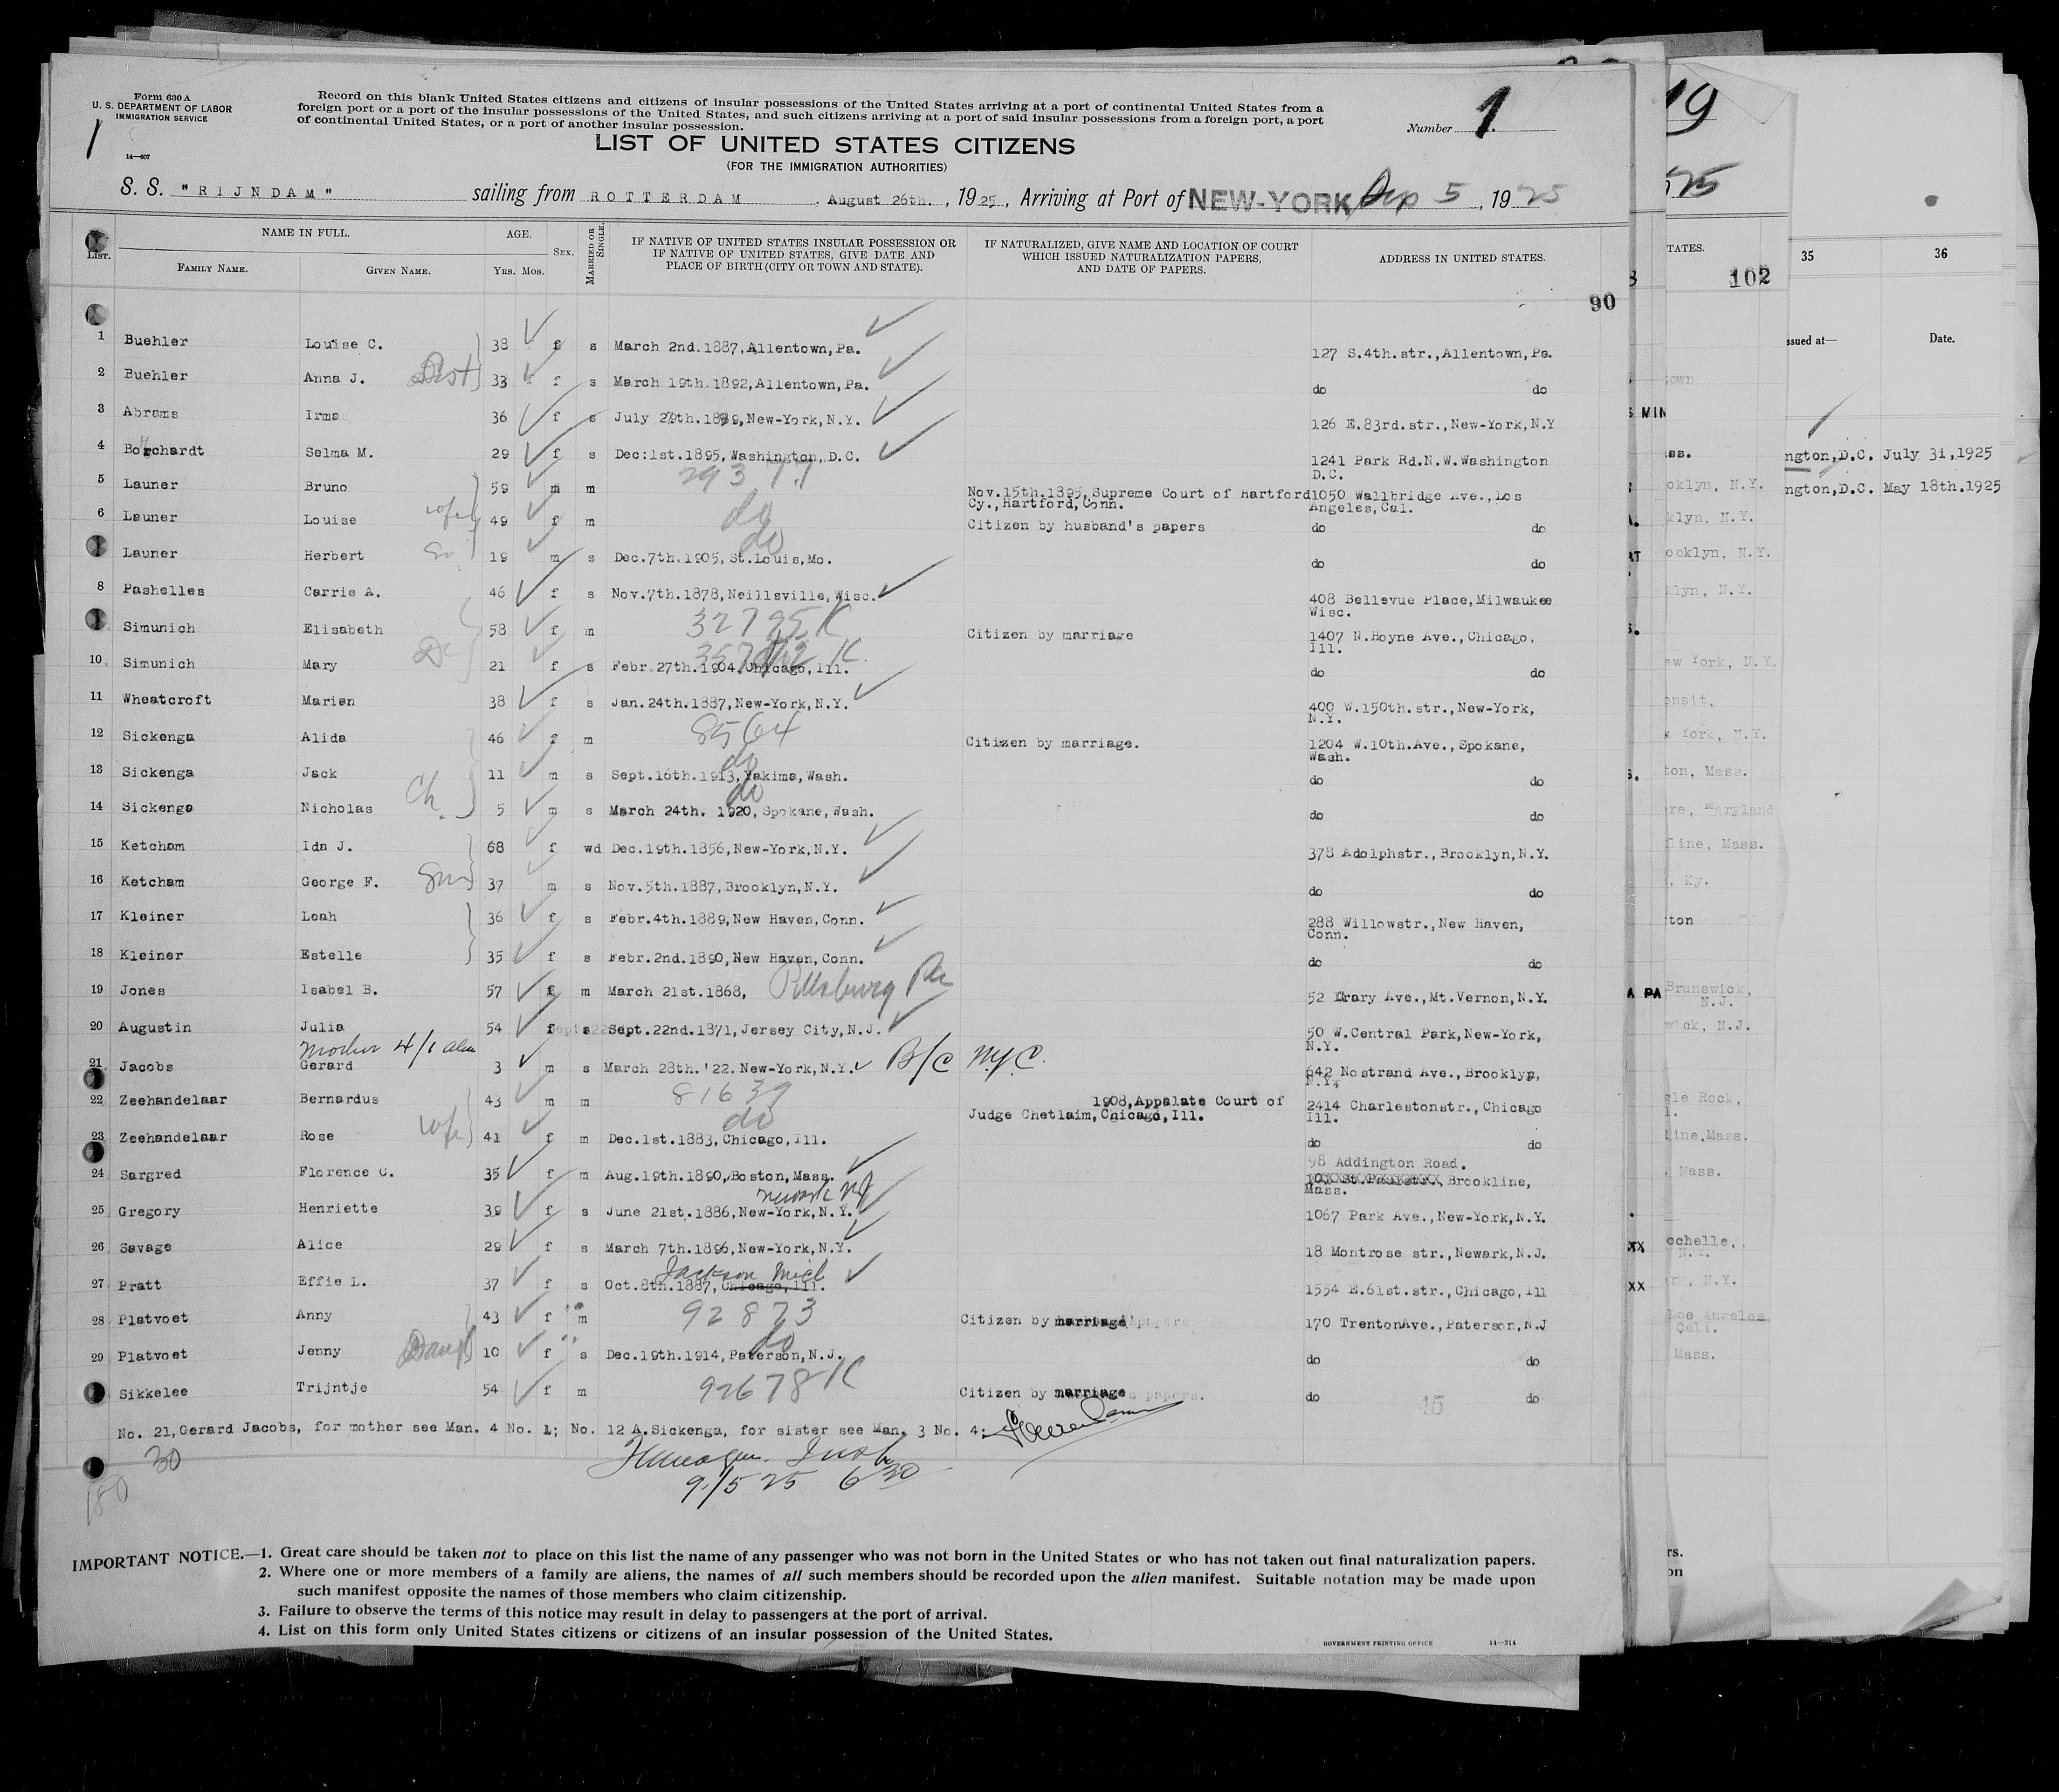 Form 630 A
U. S. DEPARTMENT OF LABOR
IMMIGRATION SERVICE
1
14—607
Record on this blank United States citizens and citizens of insular possessions of the United States arriving at a port of continental United States from a
foreign port or a port of the insular possessions of the United States, and such citizens arriving at a port of said insular possessions from a foreign port, a port
of continental United States, or a port of another insular possession.
Number 1
LIST OF UNITED STATES CITIZENS
(FOR THE IMMIGRATION AUTHORITIES)
S. S. "RIJNDAM" sailing from ROTTERDAM August 26th., 1925, Arriving at Port of NEW-YORK, Sep 5, 1925
List. NAME IN FULL. FAMILY NAME. GIVEN NAME. AGE. Yrs. Mos. SEX. MARRIED OR SINGLE. IF NATIVE OF UNITED STATES INSULAR POSSESSION OR IF NATIVE OF UNITED STATES, GIVE DATE AND PLACE OF BIRTH (CITY OR TOWN AND STATE). IF NATURALIZED, GIVE NAME AND LOCATION OF COURT WHICH ISSUED NATURALIZATION PAPERS, AND DATE OF PAPERS. ADDRESS IN UNITED STATES.
90
1 Buehler Louise C. 38 f s March 2nd.1887,Allentown,Pa. 127 S.4th.str.,Allentown,Pa.
2 Buehler Anna J. 33 f s March 19th.1892,Allentown,Pa. do do
3 Abrams Irma 36 f s July 29th.1889,New-York,N.Y. 126 E.83rd.str.,New-York,N.Y
4 Borchardt Selma M. 29 f s Dec:1st.1895,Washington,D.C. 1241 Park Rd.N.W.Washington D.C.
29377
5 Launer Bruno 59 m m Nov.15th.1895,Supreme Court of Hartford Cy.,Hartford,Conn. 1050 Wallbridge Ave.,Los Angeles,Cal.
6 Launer Louise wife 49 f m do Citizen by husband's papers do do
Launer Herbert 19 m s do Dec.7th.1905,St.Louis,Mo. do do
8 Pashelles Carrie A. 46 f s Nov.7th.1878,Neillsville,Wisc. 408 Bellevue Place,Milwaukee Wisc.
Simunich Elisabeth 58 f m 32795 K Citizen by marriage 1407 N.Hoyne Ave.,Chicago, Ill.
10 Simunich Mary 21 f s Febr.27th.1904.Chicago,Ill. do do
11 Wheatcroft Marien 38 f s Jan.24th.1887,New-York,N.Y. 400 W.150th.str.,New-York, N.Y.
12 Sickenga Alida 46 f m 8564 Citizen by marriage. 1204 W.10th.Ave.,Spokane, Wash.
13 Sickenga Jack 11 m s do Sept.16th.1913,Yakima,Wash. do do
14 Sickenga Nicholas Ch. 5 m s do March 24th. 1920,Spokane,Wash. do do
15 Ketcham Ida J. 68 f wd Dec.19th.1856,New-York,N.Y. 378 Adolphstr.,Brooklyn,N.Y.
16 Ketcham George F. Son 37 m s Nov.5th.1887,Brooklyn,N.Y. do do
17 Kleiner Leah 36 f s Febr.4th.1889,New Haven,Conn. 288 Willowstr.,New Haven, Conn.
18 Kleiner Estelle 35 f s Febr.2nd.1890,New Haven,Conn. do do
19 Jones Isabel B. 57 f m March 21st.1868, Pittsburg Pa 52 Crary Ave.,Mt.Vernon,N.Y.
20 Augustin Julia 54 f s Sept.22nd.1871,Jersey City,N.J. 50 W.Central Park,New-York, N.Y.
mother 4/1 alien
21 Jacobs Gerard 3 m s March 28th.'22.New-York,N.Y. B/C N.Y.C. 642 Nostrand Ave.,Brooklyn, N.Y.
22 Zeehandelaar Bernardus 43 m m 81639 1908,Appalate Court of Judge Chetlaim,Chicago,Ill. 2414 Charlestonstr.,Chicago Ill.
23 Zeehandelaar Rose wife 41 f m do Dec.1st.1883,Chicago,Ill. do do
24 Sargred Florence C. 35 f m Aug.19th.1890,Boston,Mass. 98 Addington Road. Brookline, Mass.
Newark NJ
25 Gregory Henriette 39 f s June 21st.1886,New-York,N.Y. 1067 Park Ave.,New-York,N.Y.
26 Savage Alice 29 f s March 7th.1896,New-York,N.Y. 18 Montrose str.,Newark,N.J.
Jackson Mich
27 Pratt Effie L. 37 f s Oct.8th.1887,Chicago,Ill. 1554 E.61st.str.,Chicago,Ill
28 Platvoet Anny 43 f m 92873 Citizen by marriage 170 TrentonAve.,Paterson,N.J
29 Platvoet Jenny Daug 10 f s do Dec.19th.1914,Paterson,N.J. do do
Sikkelee Trijntje 54 f m 92678 K Citizen by marriage do do
15
No. 21,Gerard Jacobs, for mother see Man. 4 No. 1; No. 12 A.Sickenga, for sister see Man. 3 No. 4;
30
150
9/5 25 6 30
IMPORTANT NOTICE.—1. Great care should be taken not to place on this list the name of any passenger who was not born in the United States or who has not taken out final naturalization papers.
2. Where one or more members of a family are aliens, the names of all such members should be recorded upon the alien manifest. Suitable notation may be made upon
such manifest opposite the names of those members who claim citizenship.
3. Failure to observe the terms of this notice may result in delay to passengers at the port of arrival.
4. List on this form only United States citizens or citizens of an insular possession of the United States.
GOVERNMENT PRINTING OFFICE 14—214
19
TATES.
102
35 36
ssued at— Date.
ngton,D.C. July 31,1925
ngton,D.C. May 18th,1925
oklyn, N.Y.
klyn, N.Y.
ooklyn, N.Y.
klyn, N.Y.
ew York, N.Y.
York, N.Y.
ton, Mass.
re, Maryland
line, Mass.
, Ky.
ton
Brunswick, N.J.
wick, N.J.
gle Rock,
line,Mass.
Mass.
ochelle,
N.Y.
Los Angeles Cali.
Mass.